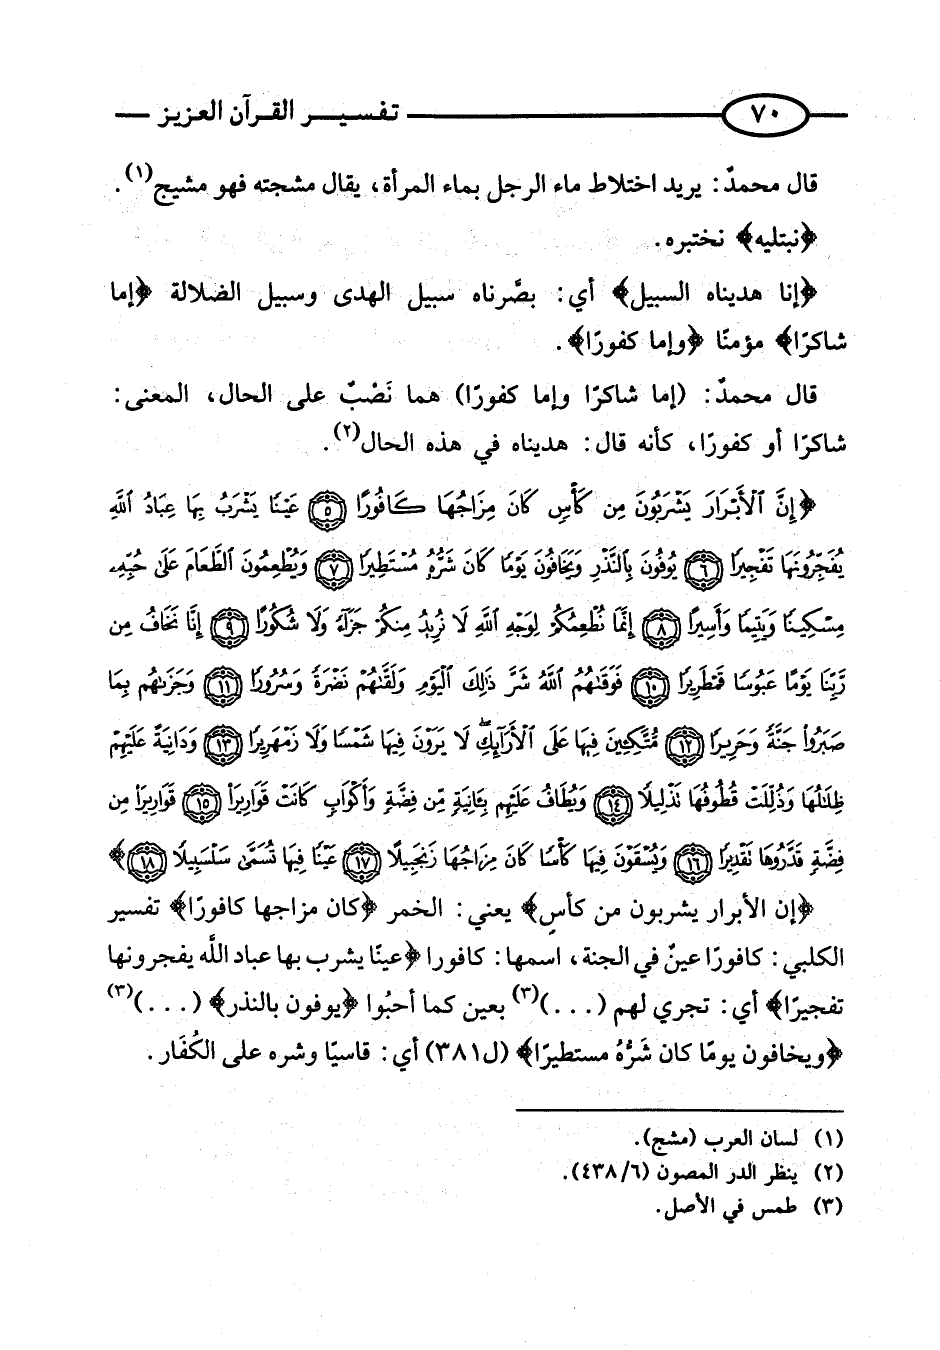 ٧٠ تفسير القرآن العزيز
قال محمدٌ: يريد اختلاط ماء الرجل بماء المرأة، يقال مشجته فهو مشيج(١).
﴿نبتليه﴾ نختبره.
﴿إنا هديناه السبيل﴾ أي: بصَّرناه سبيل الهدى وسبيل الضلالة ﴿إما
شاكرًا﴾ مؤمنًا ﴿وإما كفورًا﴾.
قال محمدٌ: (إما شاكرًا وإما كفورًا) هما نَصْبٌ على الحال، المعنى:
شاكرًا أو كفورًا، كأنه قال: هديناه في هذه الحال(٢).
﴿إِنَّ ٱلْأَبْرَارَ يَشْرَبُونَ مِن كَأْسٍ كَانَ مِزَاجُهَا كَافُورًا ٥ عَيْنًا يَشْرَبُ بِهَا عِبَادُ ٱللَّهِ
يُفَجِّرُونَهَا تَفْجِيرًا ٦ يُوفُونَ بِٱلنَّذْرِ وَيَخَافُونَ يَوْمًا كَانَ شَرُّهُۥ مُسْتَطِيرًا ٧ وَيُطْعِمُونَ ٱلطَّعَامَ عَلَىٰ حُبِّهِۦ
مِسْكِينًا وَيَتِيمًا وَأَسِيرًا ٨ إِنَّمَا نُطْعِمُكُمْ لِوَجْهِ ٱللَّهِ لَا نُرِيدُ مِنكُمْ جَزَآءً وَلَا شُكُورًا ٩ إِنَّا نَخَافُ مِن
رَّبِّنَا يَوْمًا عَبُوسًا قَمْطَرِيرًا ١٠ فَوَقَىٰهُمُ ٱللَّهُ شَرَّ ذَٰلِكَ ٱلْيَوْمِ وَلَقَّىٰهُمْ نَضْرَةً وَسُرُورًا ١١ وَجَزَىٰهُم بِمَا
صَبَرُوا۟ جَنَّةً وَحَرِيرًا ١٢ مُّتَّكِـِٔينَ فِيهَا عَلَى ٱلْأَرَآئِكِ ۖ لَا يَرَوْنَ فِيهَا شَمْسًا وَلَا زَمْهَرِيرًا ١٣ وَدَانِيَةً عَلَيْهِمْ
ظِلَٰلُهَا وَذُلِّلَتْ قُطُوفُهَا تَذْلِيلًا ١٤ وَيُطَافُ عَلَيْهِم بِـَٔانِيَةٍ مِّن فِضَّةٍ وَأَكْوَابٍ كَانَتْ قَوَارِيرَا۠ ١٥ قَوَارِيرَا۟ مِن
فِضَّةٍ قَدَّرُوهَا تَقْدِيرًا ١٦ وَيُسْقَوْنَ فِيهَا كَأْسًا كَانَ مِزَاجُهَا زَنجَبِيلًا ١٧ عَيْنًا فِيهَا تُسَمَّىٰ سَلْسَبِيلًا ١٨﴾
﴿إن الأبرار يشربون من كأسٍ﴾ يعني: الخمر ﴿كان مزاجها كافورًا﴾ تفسير
الكلبي: كافورًا عينٌ في الجنة، اسمها: كافورا ﴿عينًا يشرب بها عباد اللَّه يفجرونها
تفجيرًا﴾ أي: تجري لهم (. . .)(٣) بعين كما أحبُوا ﴿يوفون بالنذر﴾ (. . .)(٣)
﴿ويخافون يومًا كان شَرُّهُ مستطيرًا﴾ (ل٣٨١) أي: قاسيًا وشره على الكُفَار.
(١) لسان العرب (مشج).
(٢) ينظر الدر المصون (٤٣٨/٦).
(٣) طمس في الأصل.